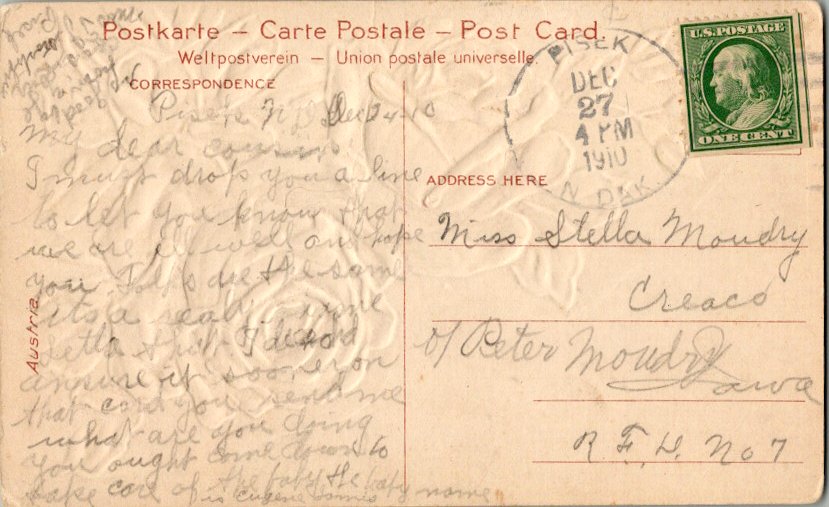 Postkarte – Carte Postale – Post Card.
Weltpostverein – Union postale universelle.
CORRESPONDENCE
Pisek N D Dec 24-10
My dear cousin
I must drop you a line
to let you know that
we are all well and hope
you Folks are the same
its a ready time
Stella that I did not
ansure it sooner on
that card you send me
what are you doing
you ought come down to
take care of the baby the baby name
is Eugene
Austria
PISEK
DEC
27
4 PM
1910
N. DAK
U.S. POSTAGE
ONE CENT
ADDRESS HERE
Miss Stella Moudry
Creaco
c/o Peter Moudry
Iowa
R. F. D. No 7